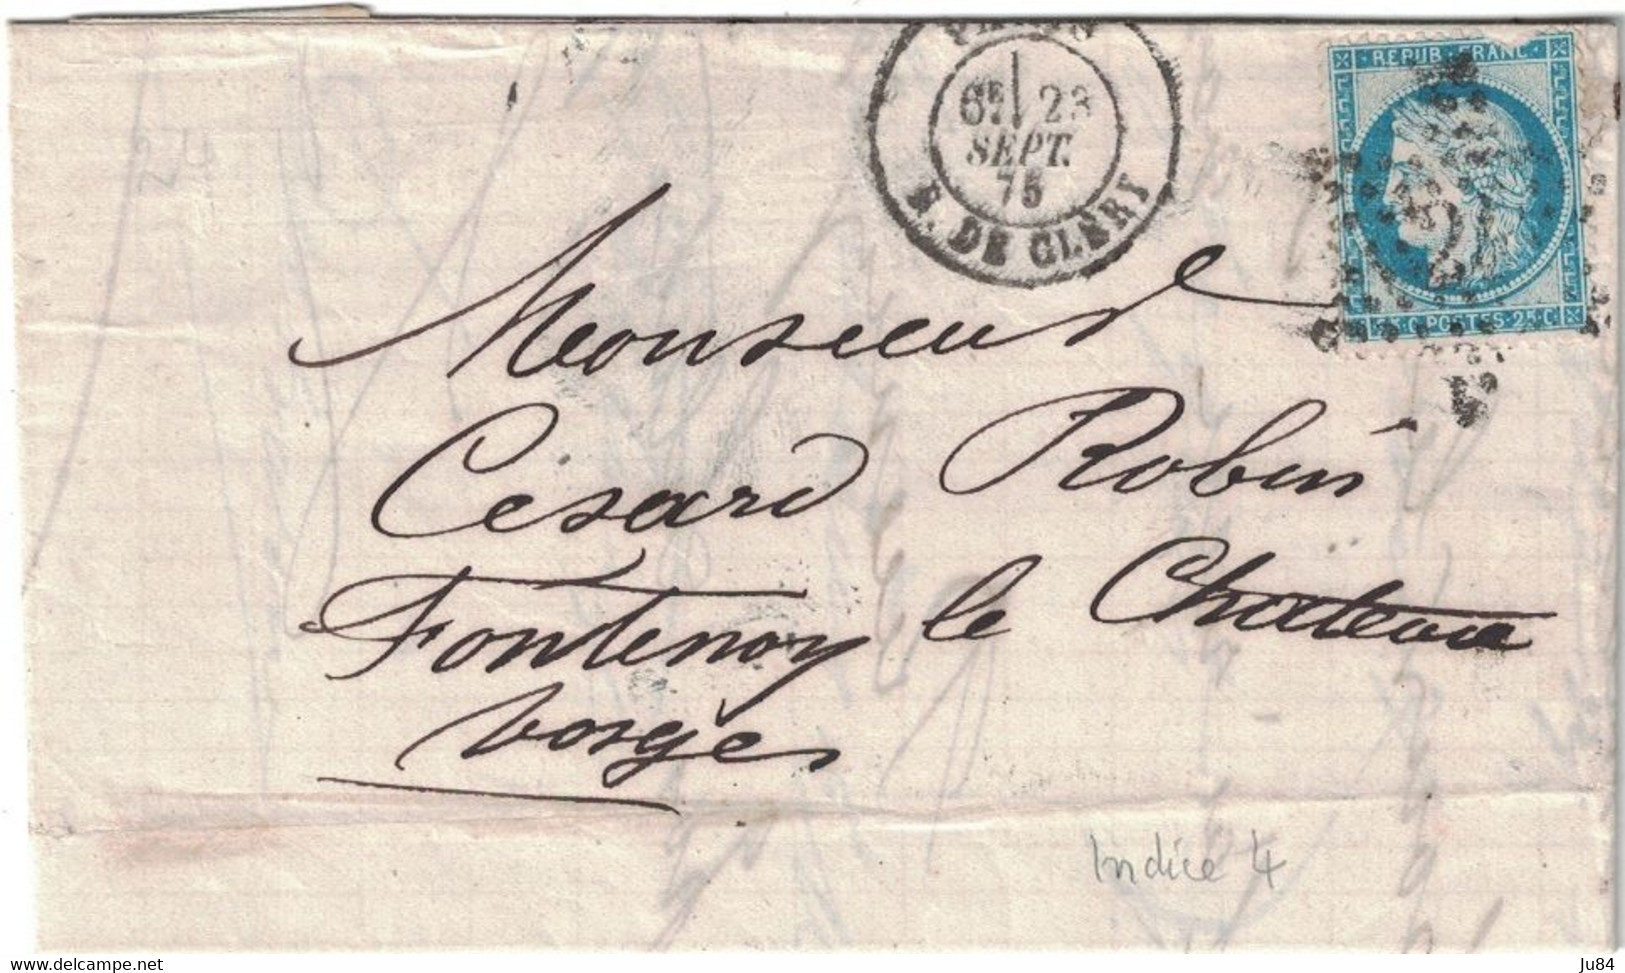 PARIS
6E 23
SEPT.
75
R. DE CLÉRY
REPUB · FRANC ·
25 C POSTES 25 C
Monsieur
Cesard Robin
Fontenoy le Chateau
Vosges
Indice 4
www.delcampe.net
Ju84